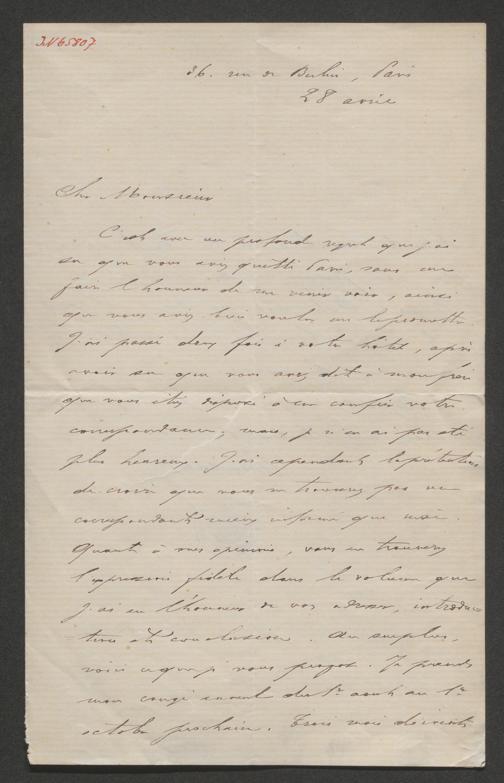 IN 65807
36. rue de Berlin, Paris
28 avril
Cher Monsieur
C'est avec un profond regret que j'ai
su que vous aviez quitté Paris, sans me
faire l'honneur de me venir voir, ainsi
que vous aviez bien voulu me le promettre.
J'ai passé deux fois à votre hôtel, après
avoir su que vous avez dit à mon frère
que vous étiez disposé à me confier votre
correspondance; mais, je n'en ai pas été
plus heureux. J'ai cependant la prétention
de croire que vous ne trouverez pas un
correspondant mieux informé que moi.
Quant à mes opinions, vous en trouverez
l'expression fidèle dans le volume que
j'ai eu l'honneur de vous adresser, introduc
tion et conclusion. Au surplus,
voici ce que je vous propose. Je prends
mon congé annuel du 1er août au 1er
octobre prochain. Trois mois